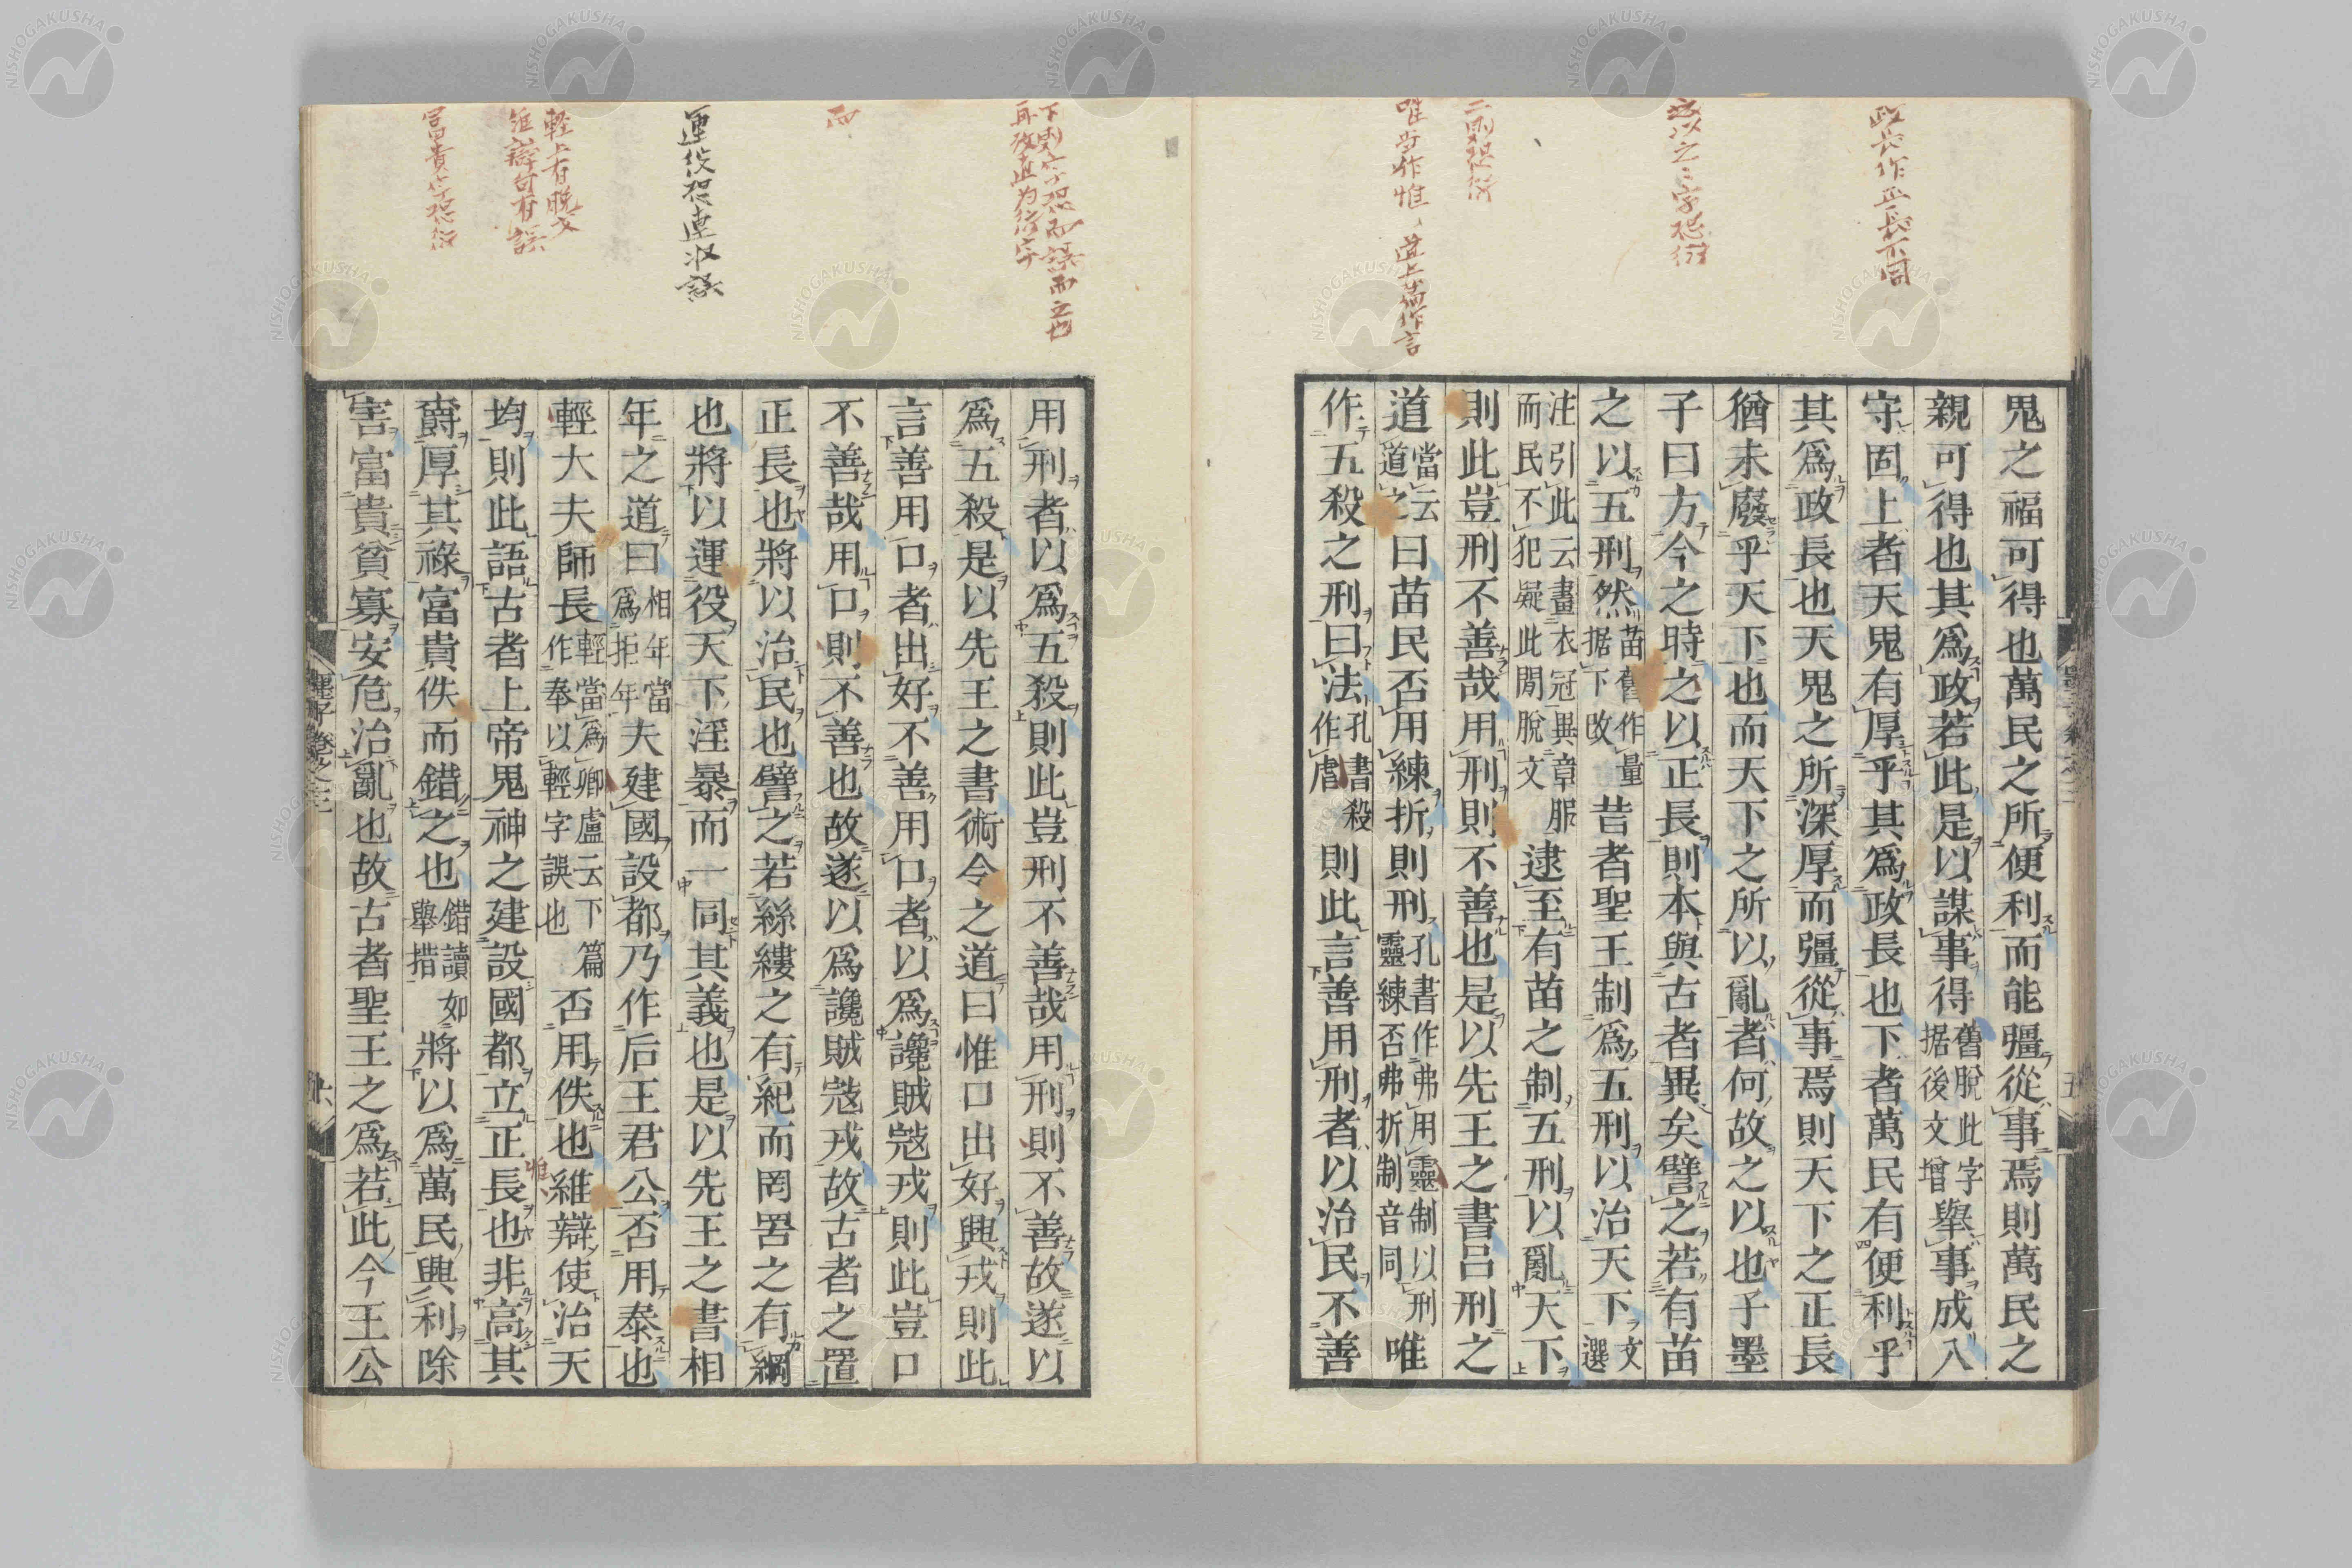 政長作正長下同
之以之二字恐衍
二則恐衍
唯当作惟、道上当作言
鬼之福可得也萬民之所便利而能彊從事焉則萬民之
親可得也其爲政若此是以謀事得舊脫此字据後文增舉事成入
守固上者天鬼有厚乎其爲政長也下者萬民有便利乎
其爲政長也天鬼之所深厚而彊從事焉則天下之正長
猶未廢乎天下也而天下之所以亂者何故之以也子墨
子曰方今之時之以正長則本與古者異矣譬之若有苗
之以五刑然苗舊作量据下改昔者聖王制爲五刑以治天下文選
注引此云畫衣冠異章服而民不犯疑此閒脫文逮至有苗之制五刑以亂天下
則此豈刑不善哉用刑則不善也是以先王之書呂刑之
道當云道之曰苗民否用練折則刑孔書作弗用靈制以刑靈練否弗折制音同唯
作五殺之刑曰法孔書殺作虐則此言善用刑者以治民不善
再攷道为衍字
而
運役恐連收誤
輕上有脫文
維辯句有誤
富貴字恐衍
用刑者以爲五殺則此豈刑不善哉用刑則不善故遂以
爲五殺是以先王之書術令之道曰惟口出好興戎則此
言善用口者出好不善用口者以爲讒賊寇戎則此豈口
不善哉用口則不善也故遂以爲讒賊寇戎故古者之置
正長也將以治民也譬之若絲縷之有紀而罔罟之有綱
也將以運役天下淫暴而一同其義也是以先王之書相
年之道曰相年當爲拒年夫建國設都乃作后王君公否用泰也
輕大夫師長輕當爲卿盧云下篇作奉以輕字誤也否用佚也維辯使治天
惟
均則此語古者上帝鬼神之建設國都立正長也非高其
爵厚其祿富貴佚而錯之也錯讀如舉措將以爲萬民興利除
害富貴貧寡安危治亂也故古者聖王之爲若此今王公
墨子卷之三
十六